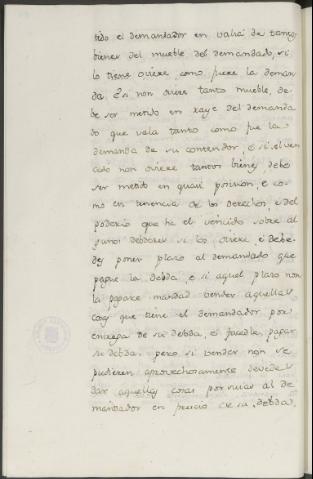 tido el demandador en valia de tantos
bienes del mueble del demandado, si
lo tiene oviere, como fuere la deman
da. E si non oviere tanto mueble, de
be ser metido en rayz del demanda
do que vala tanto como fue la
demanda de su contendor, e si el ven
cido non oviere tantos bienes, debe
ser metido en quasi posision, e co
mo en tenencia de los derechos, e del
poderio que ha el vencido sobre al
gunos debdores si los oviere, e debe
des poner plazo al demandado que
pague la debda, e si aquel plazo non
la pagare mandad vender aquellas
cosas que tiene el demandador por
entrega de su debda, e facedle pagar
su debda. pero si vender non se
pudieren aprovechosamente devedes
dar aquellas cosas por suias al de
mandador en precio de su debda,